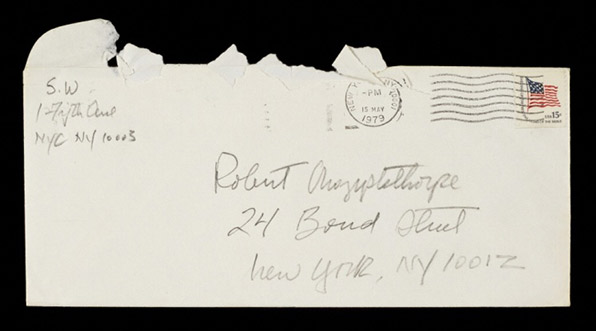 S.W.
1-Fifth Ave
NYC NY 10003
PM
15 MAY
1979
USA 15c
Robert Mapplethorpe
24 Bond Street
New York, NY 10012